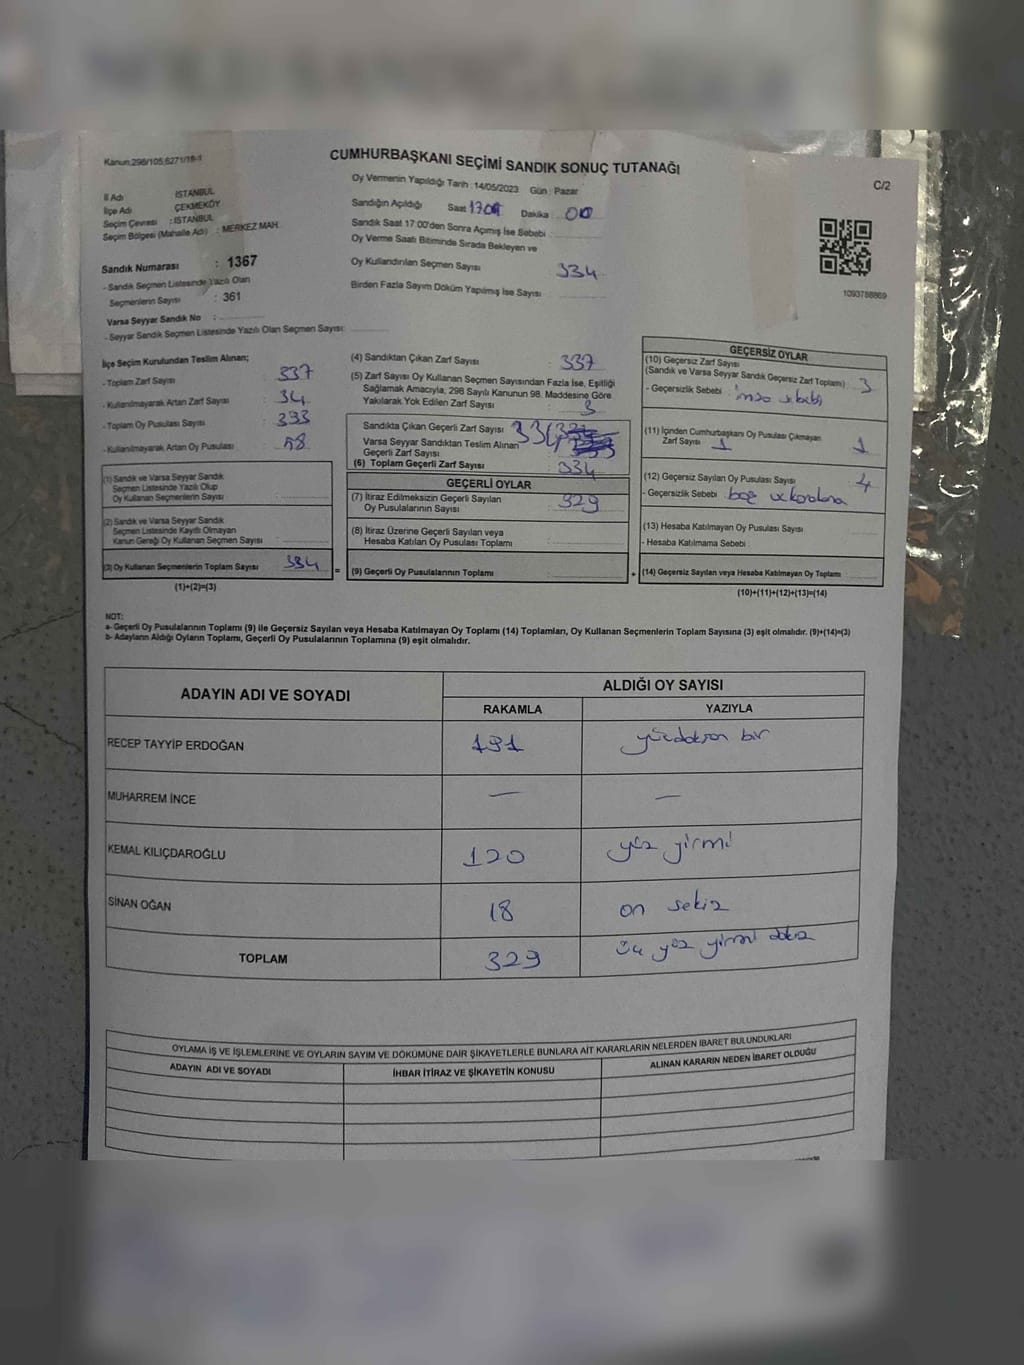 Kanun:298/105,6271/18-1
CUMHURBAŞKANI SEÇİMİ SANDIK SONUÇ TUTANAĞI
C/2
İl Adı İSTANBUL
İlçe Adı ÇEKMEKÖY
Seçim Çevresi : İSTANBUL
Seçim Bölgesi (Mahalle Adı) : MERKEZ MAH.
Sandık Numarası : 1367
- Sandık Seçmen Listesinde Yazılı Olan
Seçmenlerin Sayısı : 361
Varsa Seyyar Sandık No :
- Seyyar Sandık Seçmen Listesinde Yazılı Olan Seçmen Sayısı:
Oy Vermenin Yapıldığı Tarih : 14/05/2023 Gün : Pazar
Sandığın Açıldığı Saat Dakika 00
Sandık Saat 17:00'den Sonra Açımış İse Sebebi :
Oy Verme Saati Bitiminde Sırada Bekleyen ve
Oy Kullandırılan Seçmen Sayısı 334
Birden Fazla Sayım Döküm Yapılmış İse Sayısı :
1093788869
İlçe Seçim Kurulundan Teslim Alınan;
- Toplam Zarf Sayısı : 337
- Kullanılmayarak Artan Zarf Sayısı : 34
- Toplam Oy Pusulası Sayısı : 333
- Kullanılmayarak Artan Oy Pusulası : 58
(1) Sandık ve Varsa Seyyar Sandık
Seçmen Listesinde Yazılı Olup
Oy Kullanan Seçmenlerin Sayısı :
(2) Sandık ve Varsa Seyyar Sandık
Seçmen Listesinde Kayıtlı Olmayan
Kanun Gereği Oy Kullanan Seçmen Sayısı :
(3) Oy Kullanan Seçmenlerin Toplam Sayısı 334
(1)+(2)=(3)
=
(4) Sandıktan Çıkan Zarf Sayısı : 337
(5) Zarf Sayısı Oy Kullanan Seçmen Sayısından Fazla İse, Eşitliği
Sağlamak Amacıyla; 298 Sayılı Kanunun 98. Maddesine Göre
Yakılarak Yok Edilen Zarf Sayısı : 3
Sandıkta Çıkan Geçerli Zarf Sayısı
Varsa Seyyar Sandıktan Teslim Alınan
Geçerli Zarf Sayısı
(6) Toplam Geçerli Zarf Sayısı : 334
GEÇERLİ OYLAR
(7) İtiraz Edilmeksizin Geçerli Sayılan
Oy Pusulalarının Sayısı : 329
(8) İtiraz Üzerine Geçerli Sayılan veya
Hesaba Katılan Oy Pusulası Toplamı :
(9) Geçerli Oy Pusulalarının Toplamı :
+
GEÇERSİZ OYLAR
(10) Geçersiz Zarf Sayısı
(Sandık ve Varsa Seyyar Sandık Geçersiz Zarf Toplamı) 3
- Geçersizlik Sebebi :
(11) İçinden Cumhurbaşkanı Oy Pusulası Çıkmayan
Zarf Sayısı : 1 1
(12) Geçersiz Sayılan Oy Pusulası Sayısı : 4
- Geçersizlik Sebebi boş
(13) Hesaba Katılmayan Oy Pusulası Sayısı :
- Hesaba Katılmama Sebebi :
(14) Geçersiz Sayılan veya Hesaba Katılmayan Oy Toplamı :
(10)+(11)+(12)+(13)=(14)
NOT:
a- Geçerli Oy Pusulalarının Toplamı (9) ile Geçersiz Sayılan veya Hesaba Katılmayan Oy Toplamı (14) Toplamları, Oy Kullanan Seçmenlerin Toplam Sayısına (3) eşit olmalıdır. (9)+(14)=(3)
b- Adayların Aldığı Oyların Toplamı, Geçerli Oy Pusulalarının Toplamına (9) eşit olmalıdır.
ADAYIN ADI VE SOYADI ALDIĞI OY SAYISI
RAKAMLA YAZIYLA
RECEP TAYYİP ERDOĞAN 191 yüzdoksan bir
MUHARREM İNCE — —
KEMAL KILIÇDAROĞLU 120 yüz yirmi
SİNAN OĞAN 18 on sekiz
TOPLAM 329 üç yüz yirmi dokuz
OYLAMA İŞ VE İŞLEMLERİNE VE OYLARIN SAYIM VE DÖKÜMÜNE DAİR ŞİKAYETLERLE BUNLARA AİT KARARLARIN NELERDEN İBARET BULUNDUKLARI
ADAYIN ADI VE SOYADI İHBAR İTİRAZ VE ŞİKAYETİN KONUSU ALINAN KARARIN NEDEN İBARET OLDUĞU